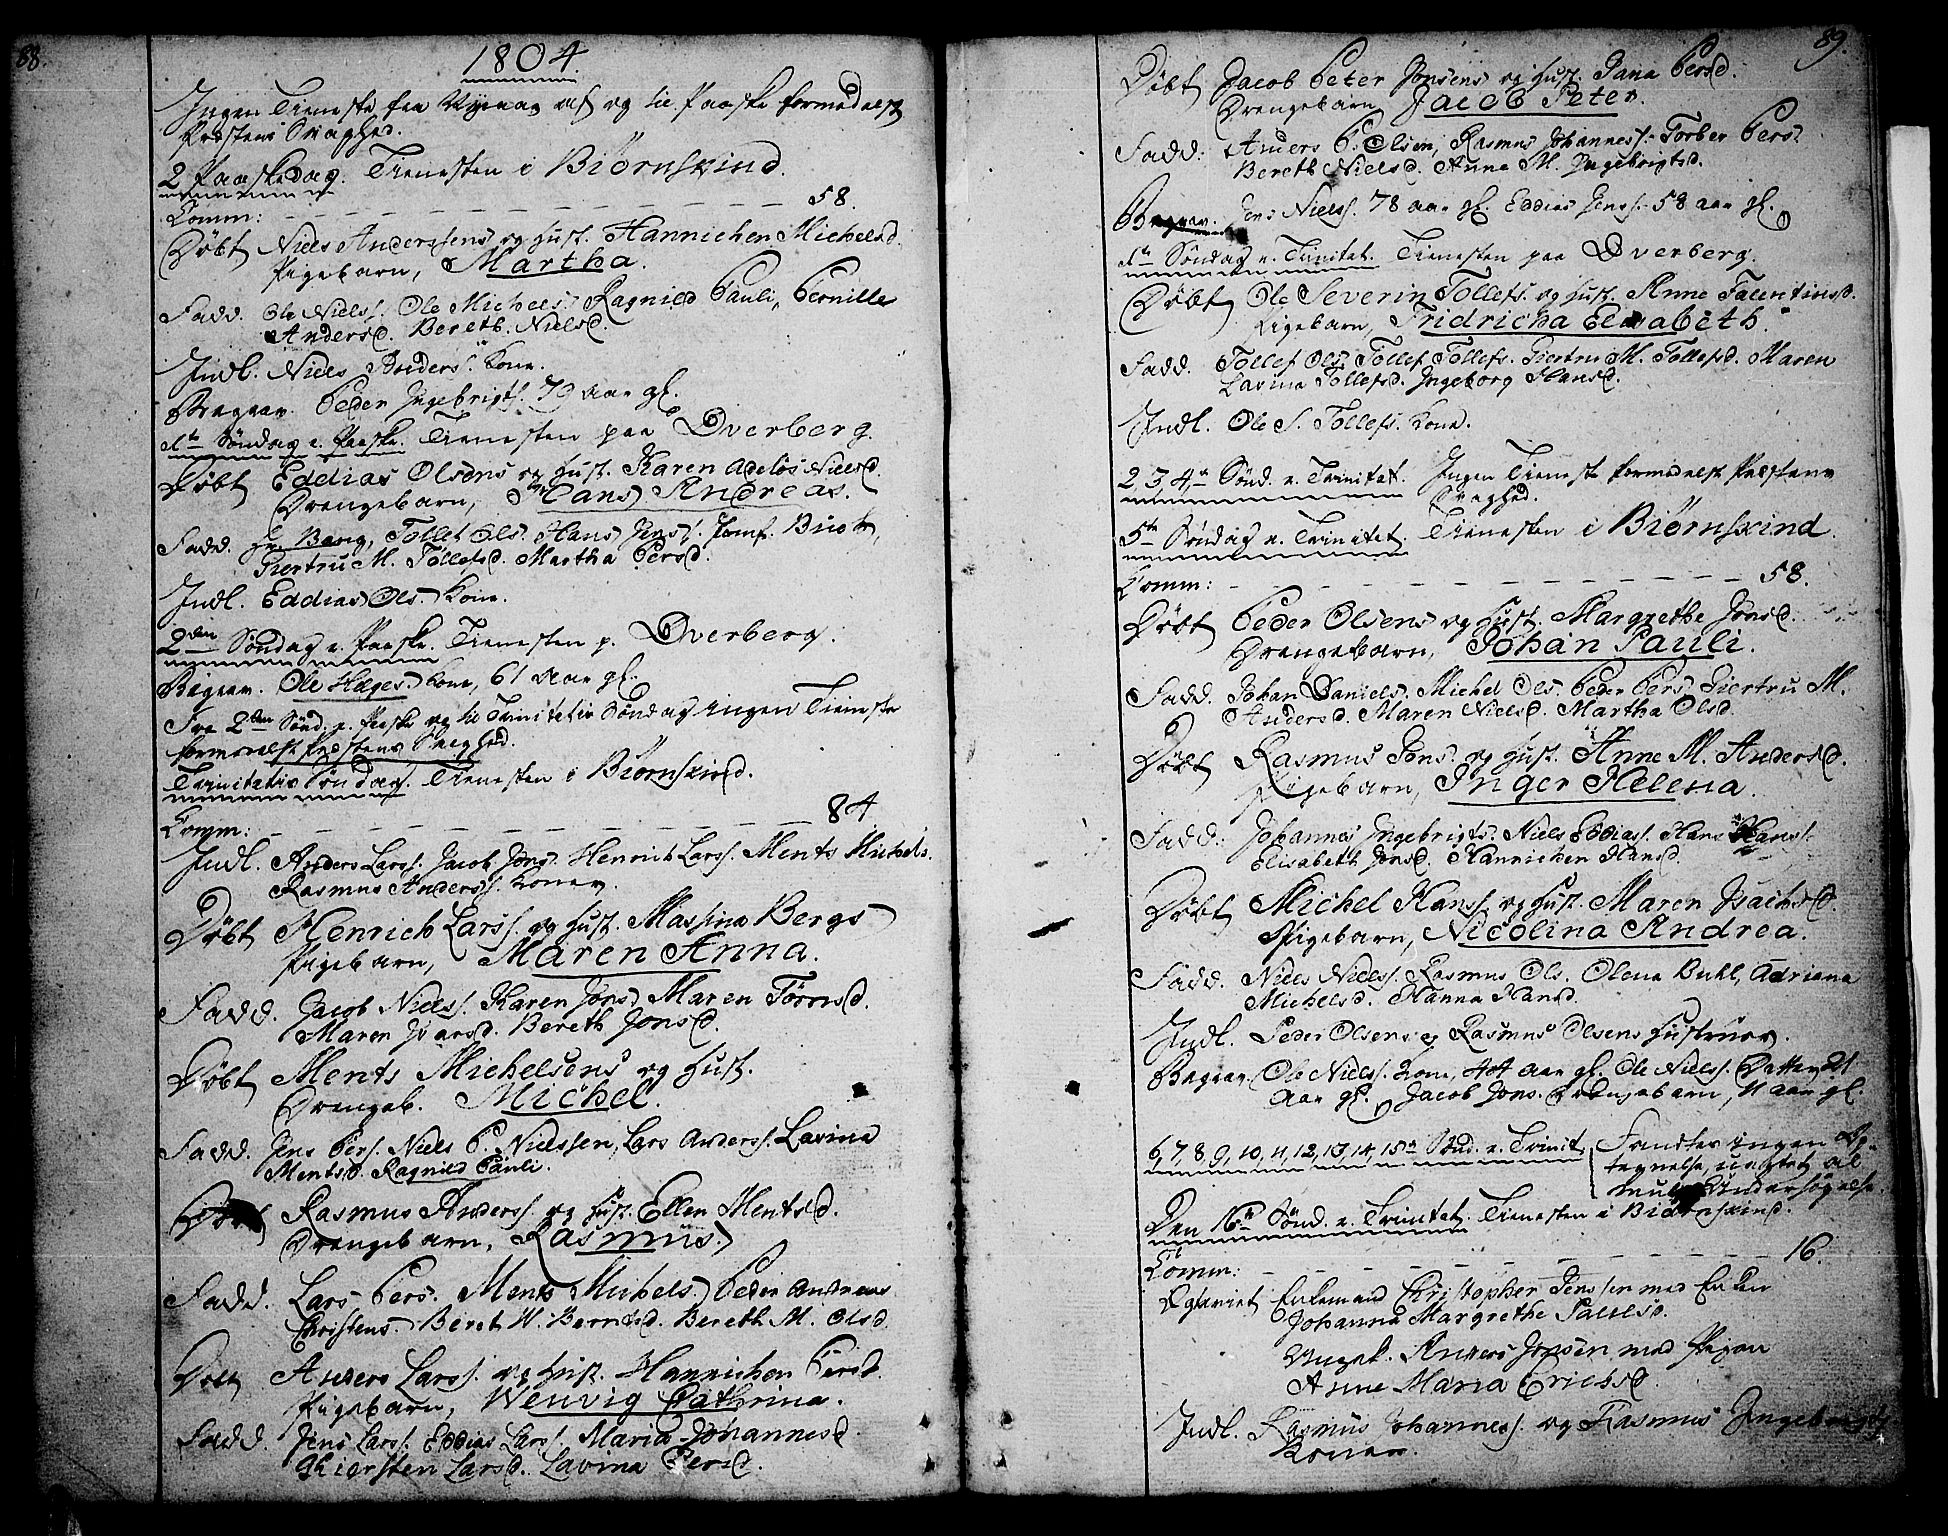 88.
1804
Ingen Tieneste fra Nyaar af og til Paaske formedelst
Præstens Svaghed.
2 Paaskedag. Tienesten i Biörnskind.
Comm: 58.
Döbt Niels Anderssens og Hust. Hannichen Michelsd.
Pigebarn, Martha.
Fadd. Ole Nielss. Ole Michels. Ragnild Pauli, Pernille
Andersd. Bereth Nielsd.
Indl. Niels Anderss. Kone.
Begrav. Peder Ingebrigts. 79 aar gl.
1te Söndag e. Paaske. Tienesten paa Dverberg.
Döbt Eddias Olsens og Hust. Karen Adelös Nielsd.
Drengebarn, Hans Andreas.
Fadd. Hr Bang, Tollef Ols. Hans Jenss. Jomf. Buch,
Giertru M. Tollefsd. Martha Persd.
Indl. Eddias Ols. Kone.
2den Söndag e. Paaske. Tienesten p. Dverberg.
Begrav. Ole Hæges Kone, 61 aar gl.
Fra 2den Sönd. e. Paaske og til Trinitatis Söndag ingen Tieneste
formedelst Præstens Svaghed.
Trinitatis Söndag. Tienesten i Biörnskind.
Comm: 84
Indl. Anders Larss. Jacob Jons. Henrich Larss. Ments Michels.
Rasmus Anderss. Koner.
Döbt Henrich Larss. og Hust. Massina Bergs
Pigebarn, Maren Anna.
Fadd. Jacob Nielss. Karen Jonsd. Maren Törrisd.
Maren Ivarsd. Bereth Jonsd.
Döbt Ments Michelsens og Hust.
Drengeb. Michel.
Fadd. Jens Pers. Niels P. Nielssen, Lars Anderss. Lavina
Mentsd. Ragnild Pauli.
Döbt Rasmus Anderss. og Hust. Ellen Mentsd.
Drengebarn, Rasmus.
Fadd. Lars Pers. Ments Michels. Peder Andreas
Christens. Beret H. Berntsd. Bereth M. Olsd.
Döbt Anders Larss. og Hust. Hannichen Persd.
Pigebarn, Wenvig Cathrina.
Fadd. Jens Larss. Eddias Larss. Maria Johannesd.
Kiersten Larsd. Lavina Persd.
89.
Döbt Jacob Peter Jonsens og Hust. Jana Persd.
Drengebarn Jacob Peter.
Fadd: Anders P. Olsen, Rasmus Johanness. Torber Pers.
Bereth Nielsd. Anne M. Ingebrigtsd.
Begrav. Jens Nielss. 78 aar gl. Eddias Jenss. 58 aar gl.
1te Söndag e. Trinitat. Tienesten paa Dverberg.
Döbt Ole Severin Tollefs. og Hust. Anne Falentinsd.
Pigebarn, Fridricha Elisabeth.
Fadd. Tollef Ols. Tollef Tollefs. Giertru M. Tollefsd. Maren
Lavina Tollefsd. Ingeborg Hansd.
Indl. Ole S. Tollefs. Kone.
2, 3, 4de Sönd. e. Trinitat. Ingen Tieneste formedelst Præstens
Svaghed.
5te Söndag e. Trinitat. Tienesten i Biörnskind.
Comm: 58.
Döbt Peder Olsens og Hust. Margrethe Jonsd.
Drengebarn, Johan Pauli.
Fadd. Johan Daniels. Michel Ols. Peder Pers. Giertru M.
Andersd. Maren Nielsd. Martha Olsd.
Döbt Rasmus Jons. og Hust. Anne M. Andersd.
Pigebarn, Inger Helena.
Fadd: Johannes Ingebrigts. Niels Eddiass. Hans Hanss.
Elisabeth Jonsd. Hannichen Hansd.
Döbt Michel Hanss. og Hust. Maren Isachsd.
Pigebarn, Nicolina Andrea.
Fadd. Niels Nielss. Rasmus Ols. Olena Buhl, Adriana
Michelsd. Hanna Hansd.
Indl. Peder Olsens og Rasmus Olsens Hustruer.
Begrav. Ole Nielss. Kone, 44 aar gl. Ole Nielss. Datter 21
aar gl. Jacob Jons. Drengebarn, 11 aar gl.
6, 7, 8, 9, 10, 11, 12, 13, 14, 15de Sönd. e. Trinit. Fandtes ingen Op-
tegnelse uagtet al
mulig Undersögelse.
Den 16de Sönd. e. Trinitat. Tienesten i Biörnskind.
Comm: 16.
Egteviet Enkemand Christopher Jenssen med Enken
Johanna Margrethe Paulsd.
Ungk. Anders Jonsen med Pigen
Anne Maria Erichsd.
Indl. Rasmus Johanness. og Rasmus Ingebrigts.
Koner.